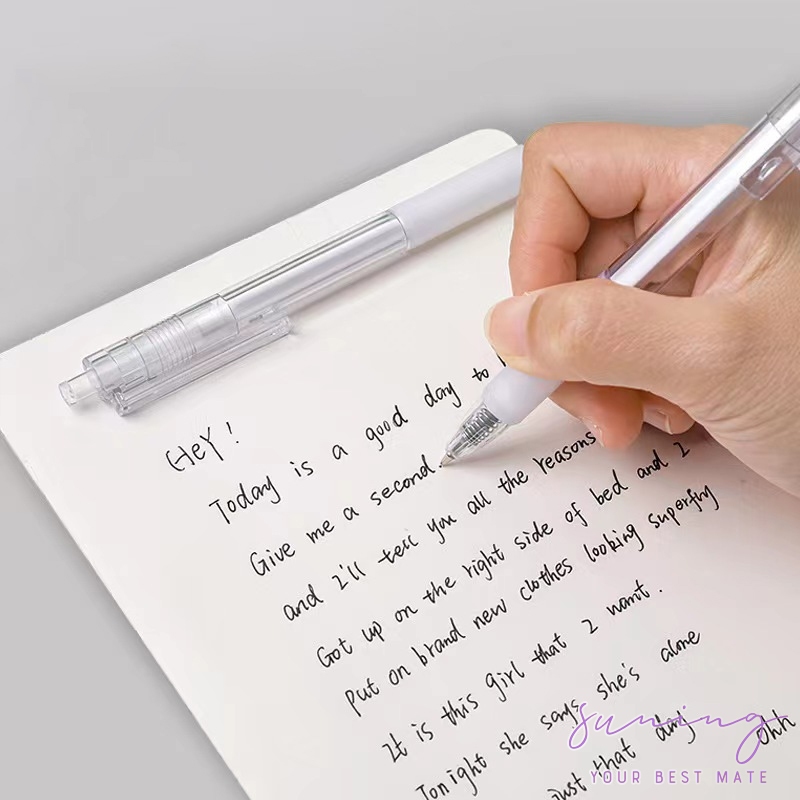 HeY!
Today is a good day to
Give me a second.
and I'll tell you all the reasons
Got up on the right side of bed and I
Put on brand new clothes looking superfly
It is this girl that I want.
Tonight she says she's alone
just that day Ohh
suning
YOUR BEST MATE